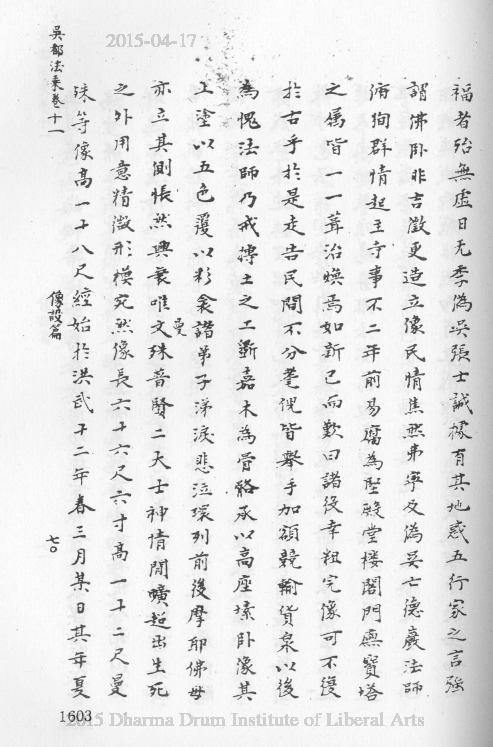 2015-04-17
吳都法乘卷十一
福者殆無虛日元季偽吳張士誠據有其地惑五行家之言強
謂佛臥非吉徵更造立像民情焦然弗寧及偽吳亡德嚴法師
俯徇群情起主寺事不二年前易腐為堅殿堂樓閣門廡寶塔
之屬皆一一葺治煥焉如新已而歎曰諸役幸粗完像可不復
於古乎於是走告民間不分耄倪皆舉手加額競輸貨泉以後
為愧法師乃戒摶土之工斵嘉木為骨骼承以高座塐臥像其
上塗以五色覆以彩衾諸弟子涕淚悲泣環列前後摩耶佛母
亦立其側悵然興哀唯文殊普賢二大士神情閒曠超出生死
曼
之外用意精微形模宛然像長六十六尺六寸高一十二尺曼
殊等像高一十八尺經始於洪武十二年春三月某日其年夏
像設篇
七〇
1603
2015 Dharma Drum Institute of Liberal Arts